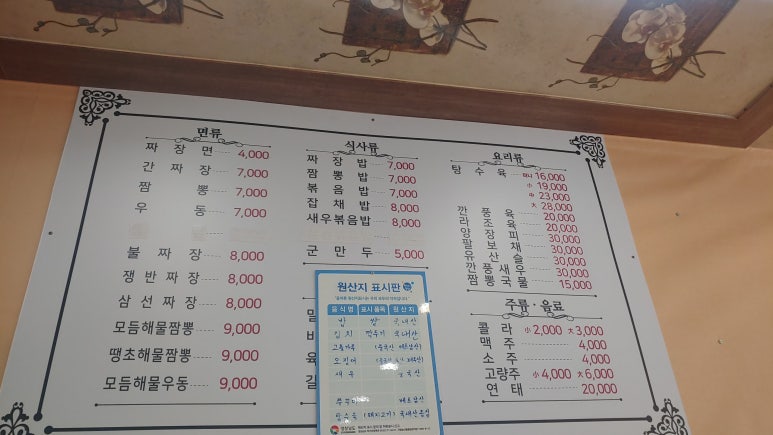 면류
짜장면 4,000
간짜장 7,000
짬뽕 7,000
우동 7,000
불짜장 8,000
쟁반짜장 8,000
삼선짜장 8,000
모듬해물짬뽕 9,000
땡초해물짬뽕 9,000
모듬해물우동 9,000
식사류
짜장밥 7,000
짬뽕밥 7,000
볶음밥 7,000
잡채밥 8,000
새우볶음밥 8,000
군만두 5,000
밀
비
육
갈
원산지 표시판
음식명 표시품목 원산지
밥 쌀 국내산
고춧가루
오징어
새우
탕수육 (돼지고기) 국내산
요리류
탕수육 미니 16,000
小 19,000
中 23,000
大 28,000
깐풍육 20,000
라조육 20,000
양장피 30,000
팔보채 30,000
유산슬 30,000
깐풍새우 30,000
짬뽕국물 15,000
주류·음료
콜라 小 2,000 大 3,000
맥주 4,000
소주 4,000
고량주 小 4,000 大 6,000
연태 20,000